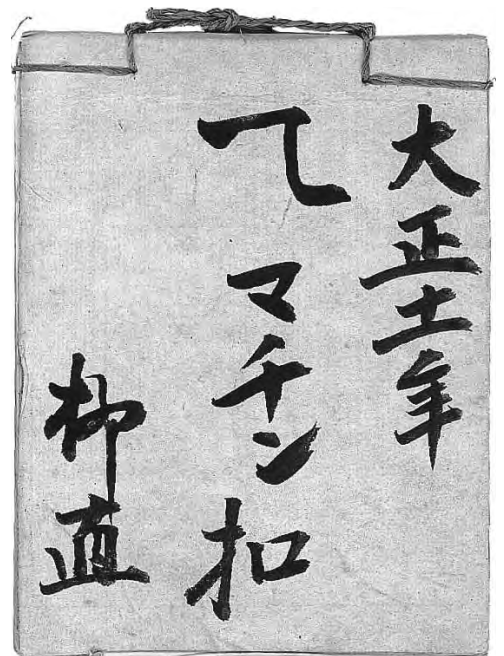 大正十一年
て マチン扣
柳直